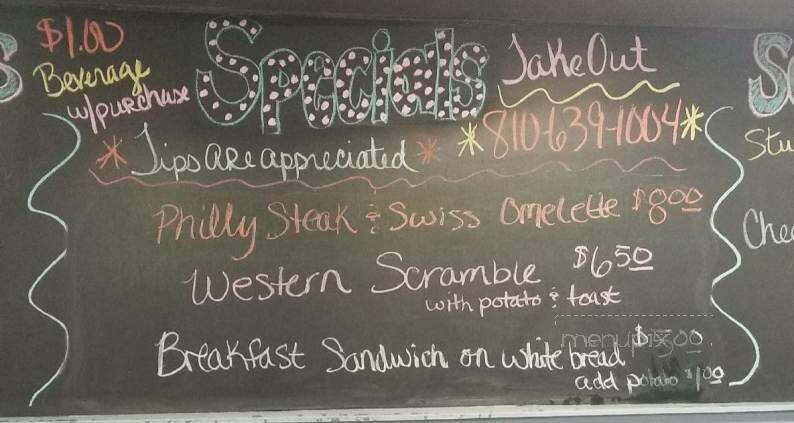 $1.00
Beverage
w/purchase
Specials
Take Out
810-639-1004
Tips are appreciated
Philly Steak & Swiss Omelette $8.00
Western Scramble $6.50
with potato & toast
Breakfast Sandwich on white bread
add potato $1.00
Stu
Che